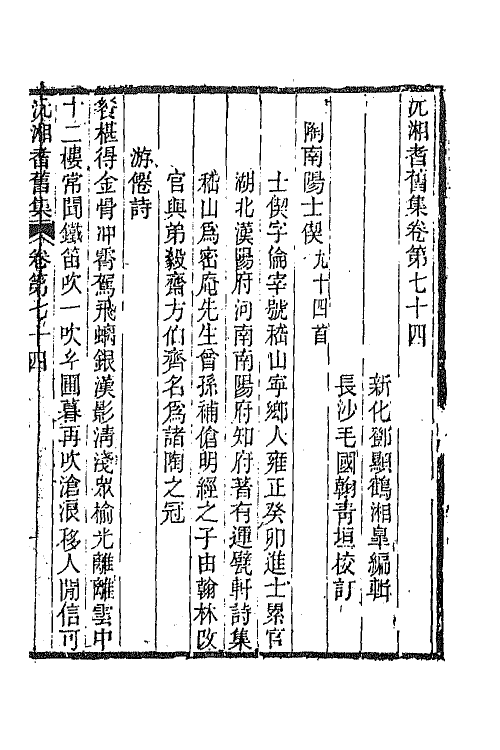 沅湘耆舊集卷第七十四
新化鄧顯鶴湘臯編輯
長沙毛國翰靑垣校訂
陶南陽士偰九十四首
士偰字倫宰號嵇山寧鄉人雍正癸卯進士累官
湖北漢陽府河南南陽府知府著有運甓軒詩集
嵇山爲密庵先生曾孫補傖明經之子由翰林改
官與弟毅齋方伯齊名爲諸陶之冠
游僊詩
餐椹得金骨冲霄駕飛螭銀漢影淸淺衆楡光離離雲中
十二樓常聞鐵笛吹一吹乡圃暮再吹滄浪移人閒信可
沅湘耆舊集
卷第七十四